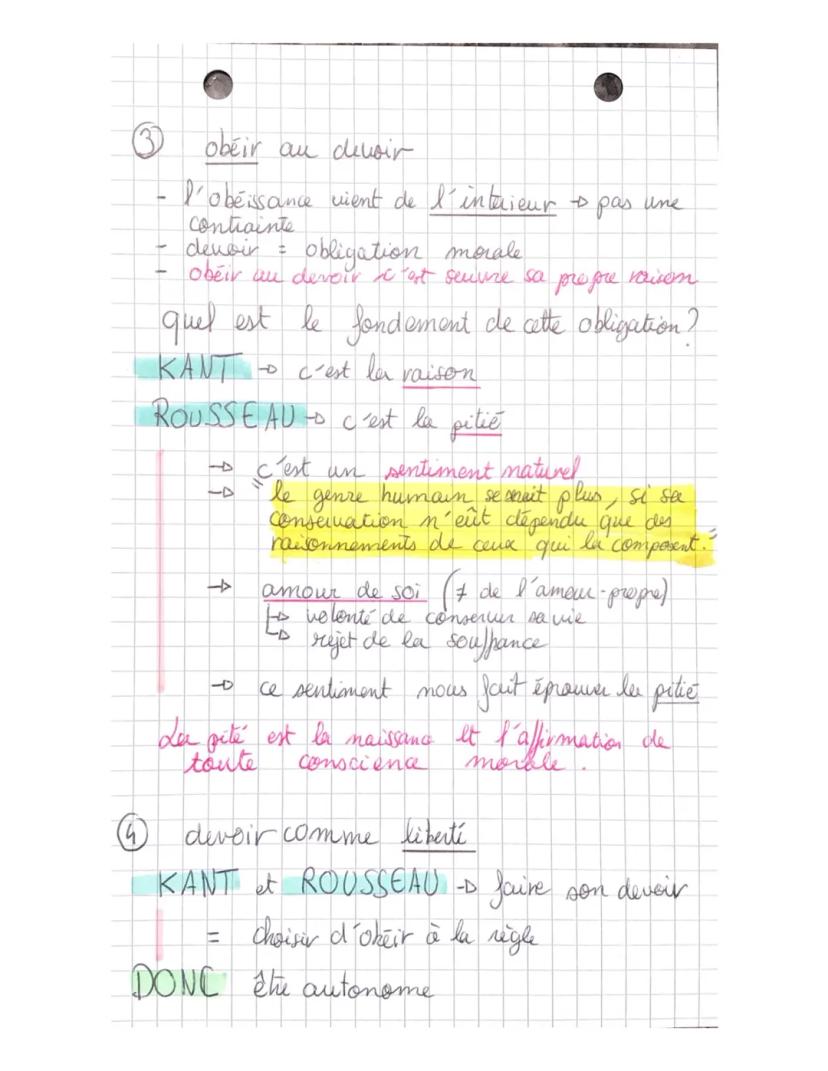 ③ obéir au devoir
- l'obéissance vient de l'intérieur → pas une
contrainte
- devoir = obligation morale
- obéir au devoir c'est suivre sa propre raison
quel est le fondement de cette obligation ?
KANT → c'est la raison
ROUSSEAU → c'est la pitié
→ c'est un sentiment naturel
→ " le genre humain serait plus, si sa
conservation n'eût dépendu que des
raisonnements de ceux qui la composent."
→ amour de soi (≠ de l'amour-propre)
↳ volonté de conserver sa vie
↳ rejet de la souffrance
→ ce sentiment nous fait éprouver la pitié
La pité est la naissance et l'affirmation de
toute conscience morale.
④ devoir comme liberté
KANT et ROUSSEAU → faire son devoir
= choisir d'obéir à la règle
DONC être autonome